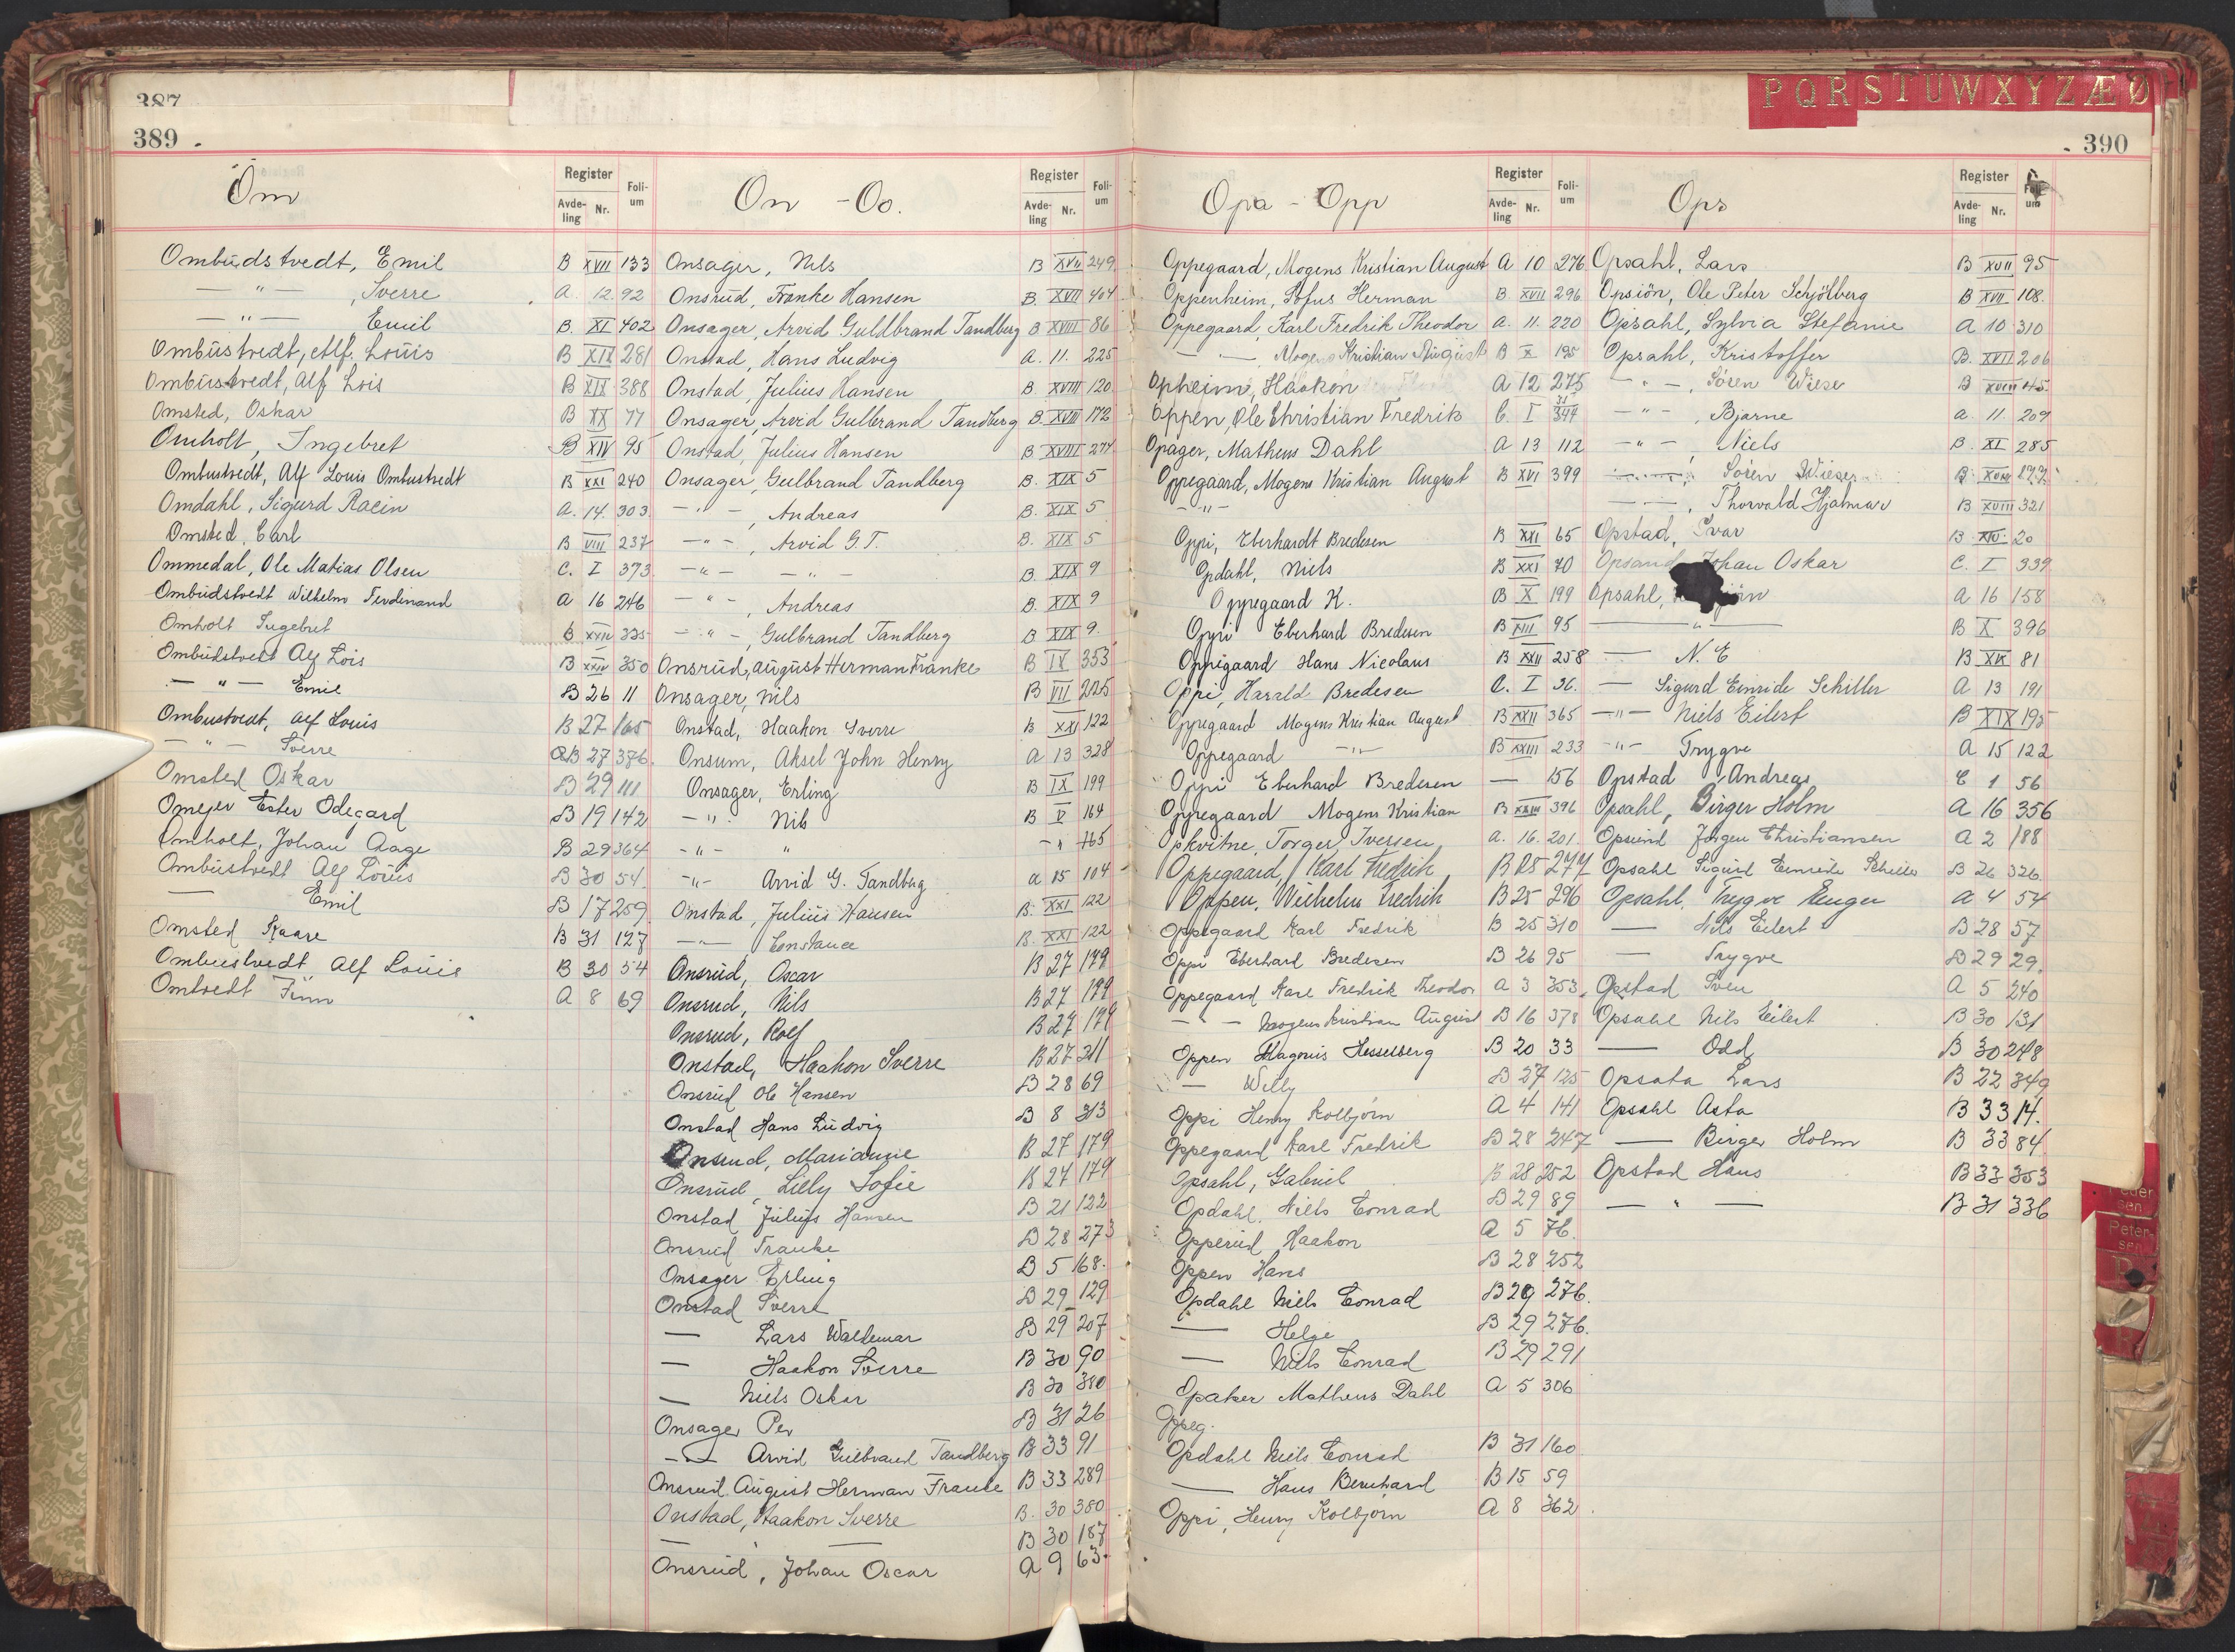 387
389.
P Q R S T U W X Y Z Æ Ø
390
Om
Register Avdeling Nr. Folium
Ombudstvedt, Emil B XVII 133
— " — , Sverre A. 12. 92
— " — Emil B. XI 402
Ombustvedt, Alf. Louis B XIX 281
Ombustvedt, Alf Lois B XIX 388
Omsted, Oskar B XX 77
Omholt, Ingebret B XIV 95
Ombustvedt, Alf Louis Ombustvedt B XXI 240
Omdahl, Sigurd Racin A. 14. 303.
Omsted, Carl B VIII 237
Ommedal, Ole Matias Olsen C. I 373
Ombudstvedt Wilhelm Ferdinand A 16 246
Omholt Ingebret B XXIV 335
Ombudstvedt Alf Lois B XXIV 350
— " — Emil B 26 11
Ombustvedt, Alf Louis B 27 165
— " — Sverre B 27 376.
Omsted Oskar B 29 111
Omejer Ester Odegard B 19 142
Omholt, Johan Aage B 29 364
Ombustvedt Alf Louis B 30 54.
— Emil B 17 259
Omsted Kaare B 31 127
Ombustvedt Alf Louis B 30 54
Omtvedt Finn A 8 69
On - Oo.
Register Avdeling Nr. Folium
Onsager, Nils B XVII 249
Onsrud, Franke Hansen B. XVII 404
Onsager, Arvid Guldbrand Tandberg B XVIII 86
Onstad, Hans Ludvig A. 11. 225
Onstad, Julius Hansen B. XVIII 120
Onsager, Arvid Gulbrand Tandberg B. XVIII 172
Onstad, Julius Hansen B XVIII 274
Onsager, Gulbrand Tandberg B. XIX 5
— " — , Andreas B. XIX 5
— " — , Arvid G. T. B. XIX 5
— " — — " — B. XIX 9
— " — , Andreas B. XIX 9
— " — , Gulbrand Tandberg B XIX 9.
Onsrud, August Herman Franke B IX 353
Onsager, Nils B VII 225
Onstad, Haakon Sverre B XXI 122
Onsum, Aksel John Henry A 13 328
Onsager, Erling B IX 199
— " — Nils B V 164
— " — " — " 165
— " — Arvid G. Tandbrg A 15 104
Onstad, Julius Hansen B. XXI 122
— " — Constance B. XXI 122
Onsrud, Oscar B 27 179
Onsrud, Nils B 27 179
Onsrud, Rolf B 27 179
Onstad, Haakon Sverre B 27 311
Onsrud Ole Hansen B 28 69
Onstad Hans Ludvig B 8 313
Onsrud, Marianne B 27 179
Onsrud, Lilly Sofie B 27 179
Onstad Julius Hansen B 21 122
Onsrud Franke B 28 273
Onsager Erling B 5 168.
Onstad Sverre B 29 129
— Lars Waldemar B 29 207
— Haakon Sverre B 30 90
— Niels Oskar B 30 380
Onsager Per B 31 26
— " — Arvid Gulbrand Tandberg B 33 91
Onsrud August Herman Franke B 33 289
Onstad, Haakon Sverre B. 30 380
— — B 30 187
Onsrud, Johan Oscar A 9 63.
Opa - Opp
Register Avdeling Nr. Folium
Oppegaard, Mogens Kristian August A 10 276
Oppenheim, Sofus Herman B XVII 296
Oppegaard, Karl Fredrik Theodor A. 11. 220
— " — , Mogens Kristian August B X 195
Opheim, Haakon A 12 275
Oppen, Ole Christian Fredrik C. I 347
Opager, Matheus Dahl A 13 112
Oppegaard, Mogens Kristian August B XVI 399
— " —
Oppi, Eberhardt Bredesen B XXI 65
Opdahl, Niels B XXI 70
Oppegaard K. B X 199
Oppi Eberhard Bredesen B XIII 95
Oppegaard Hans Nicolaus B XXII 258
Oppi, Harald Bredesen C. I 36.
Oppegaard Mogens Kristian August B XXII 365
Oppegaard — " — B XXIII 233
Oppi Eberhard Bredesen — 156
Oppegaard Mogens Kristian B XXIII 396
Opkvitne, Torger Iversen A. 16. 201.
Oppegaard, Karl Fredrik B 25 277
Oppen, Wilhelm Fredrik B 25 296
Oppegaard Karl Fredrik B 25 310
Oppi Eberhard Bredesen B 26 95
Oppegaard Karl Fredrik Theodor A 3 353
— — Mogens Kristian August B 16 378
Oppen Magnus Hesselberg B 20 33
— Willy B 27 125
Oppi Henry Kolbjørn A 4 141
Oppegaard Karl Fredrik B 28 247
Opsahl, Gabriel B 28 252
Opdahl, Niels Conrad B 29 89
Opperud Haakon A 5 76.
Oppen Hans B 28 252
Opdahl Niels Conrad B 29 276.
— Helge B 29 276.
— Niels Conrad B 29 291
Opaker Matheus Dahl A 5 306
Oppeg.
Opdahl Niels Conrad B 31 160
— Hans Bernhard B 15 59
Oppi, Henry Kolbjørn A 8 362.
Ops
Register Avdeling Nr. Folium
Opsahl, Lars B XVII 95
Opsiön, Ole Peter Schjölberg B XVII 108.
Opsahl, Sylvia Stefanie A 10 310
Opsahl, Kristoffer B. XVII 206
— " — , Sören Wiese B XVIII 45.
— " — , Bjarne A. 11. 209
— " — , Niels B. XI 285
— " — , Sören Wieser B. XVIII 177
— " — , Thorvald Hjalmar B XVIII 321
Opstad, Ivar B XIV 20
Opsand, Johan Oskar C. I 339
Opsahl, A 16 158
— " — B X 396
— N. E B XIX 81
— Sigurd Emride Schiller A 13 191
— " — Niels Eilert B XIX 195
— " — Trygve A 15 122
Opstad, Andreas C 1 56
Opsahl, Birger Holm A 16 356
Opsund Jørgen Christiansen A 2 188
Opsahl Sigurd Emride Schiller B 26 326.
Opsahl, Trygve Eugen A 4 54
— Nils Eilert B 28 57
— Trygve B 29 29.
Opstad Sven A 5 240
Opsahl Nils Eilert B 30 131
— Odd B 30 248
Opsata Lars B 22 349
Opsahl Asta B 33 14.
— Birger Holm B 33 84
Opstad Hans B 33 353
— " — B 31 336
Peder sen
Peter- sen